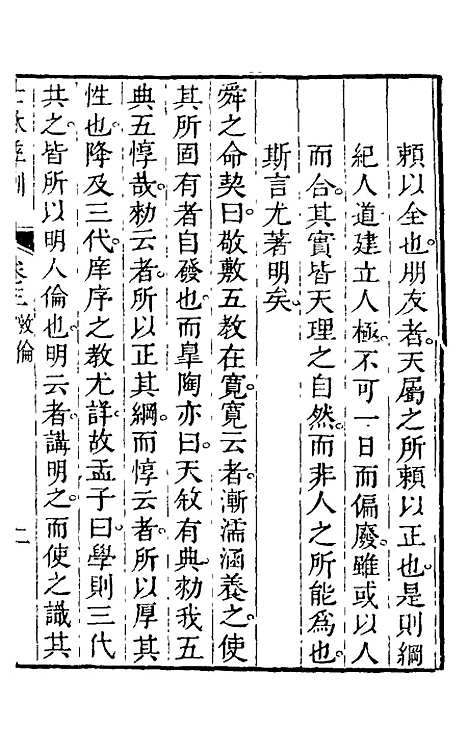 賴以全也。朋友者。天屬之所賴以正也。是則綱
紀人道建立人極。不可一日而偏廢。雖或以人
而合。其實皆天理之自然。而非人之所能爲也。
斯言尤著明矣。
舜之命契曰。敬敷五教在寛。寛云者。漸濡涵養之。使
其所固有者自發也。而臯陶亦曰。天敘有典。勑我五
典五惇哉。勑云者。所以正其綱。而惇云者。所以厚其
性也。降及三代。庠序之教尤詳。故孟子曰。學則三代
共之。皆所以明人倫也。明云者。講明之。而使之識其
卷三 敦倫 二